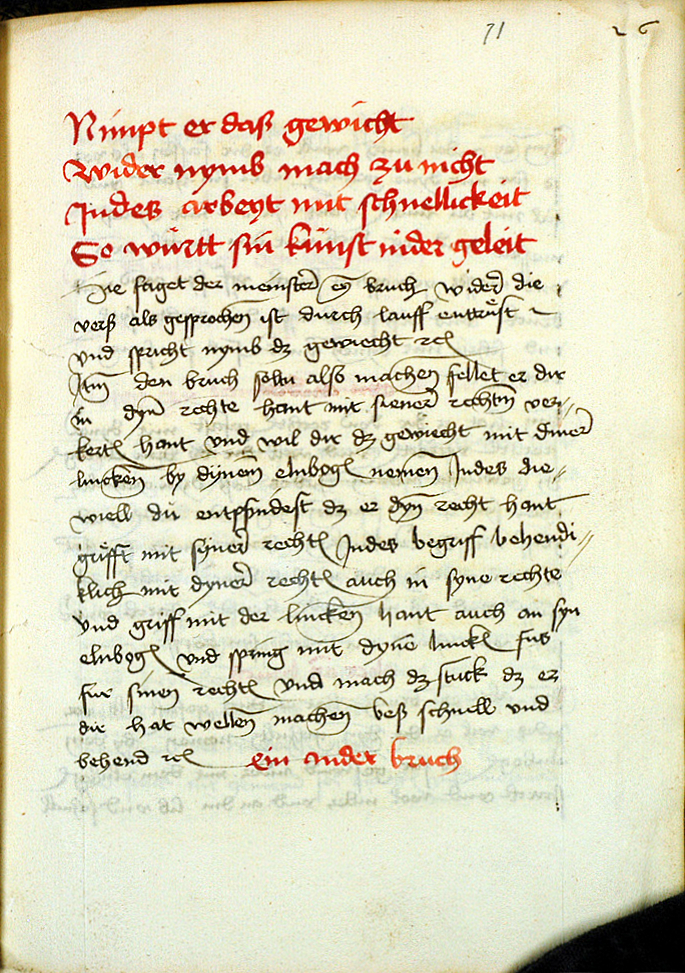 71
26
Nimpt er das gewicht
wider nymb mach zu nicht
Indes arbeyt mit schnellickeit
So württ sin künst nider geleit
Hie saget der meinster ey bruch wider die
verß als gesprochen ist durch lauff entrüst
vnd spricht nymb dz gewiecht rcl
Itm den bruch soltu also machen fellet er dir
in dyn rechte hant mit siener rechtn ver„
kertl hant vnd wil dir dz gewiecht mit diner
lincken by dynem elnbogl nemen Indes die„
wiell dü entpfindest dz er dyn recht hant
grifft mit sÿner rechtl Indes begriff behendi„
klich mit dyner rechtl auch in syne rechte
vnd griff mit der lincken hant auch an syn
elnbogl vnd spring mit dyne linckl fus
für sinen rechtl vnd mach dz stuck dz er
dir hat wellen machen beß schnell vnd
behend rcl ein ander bruch